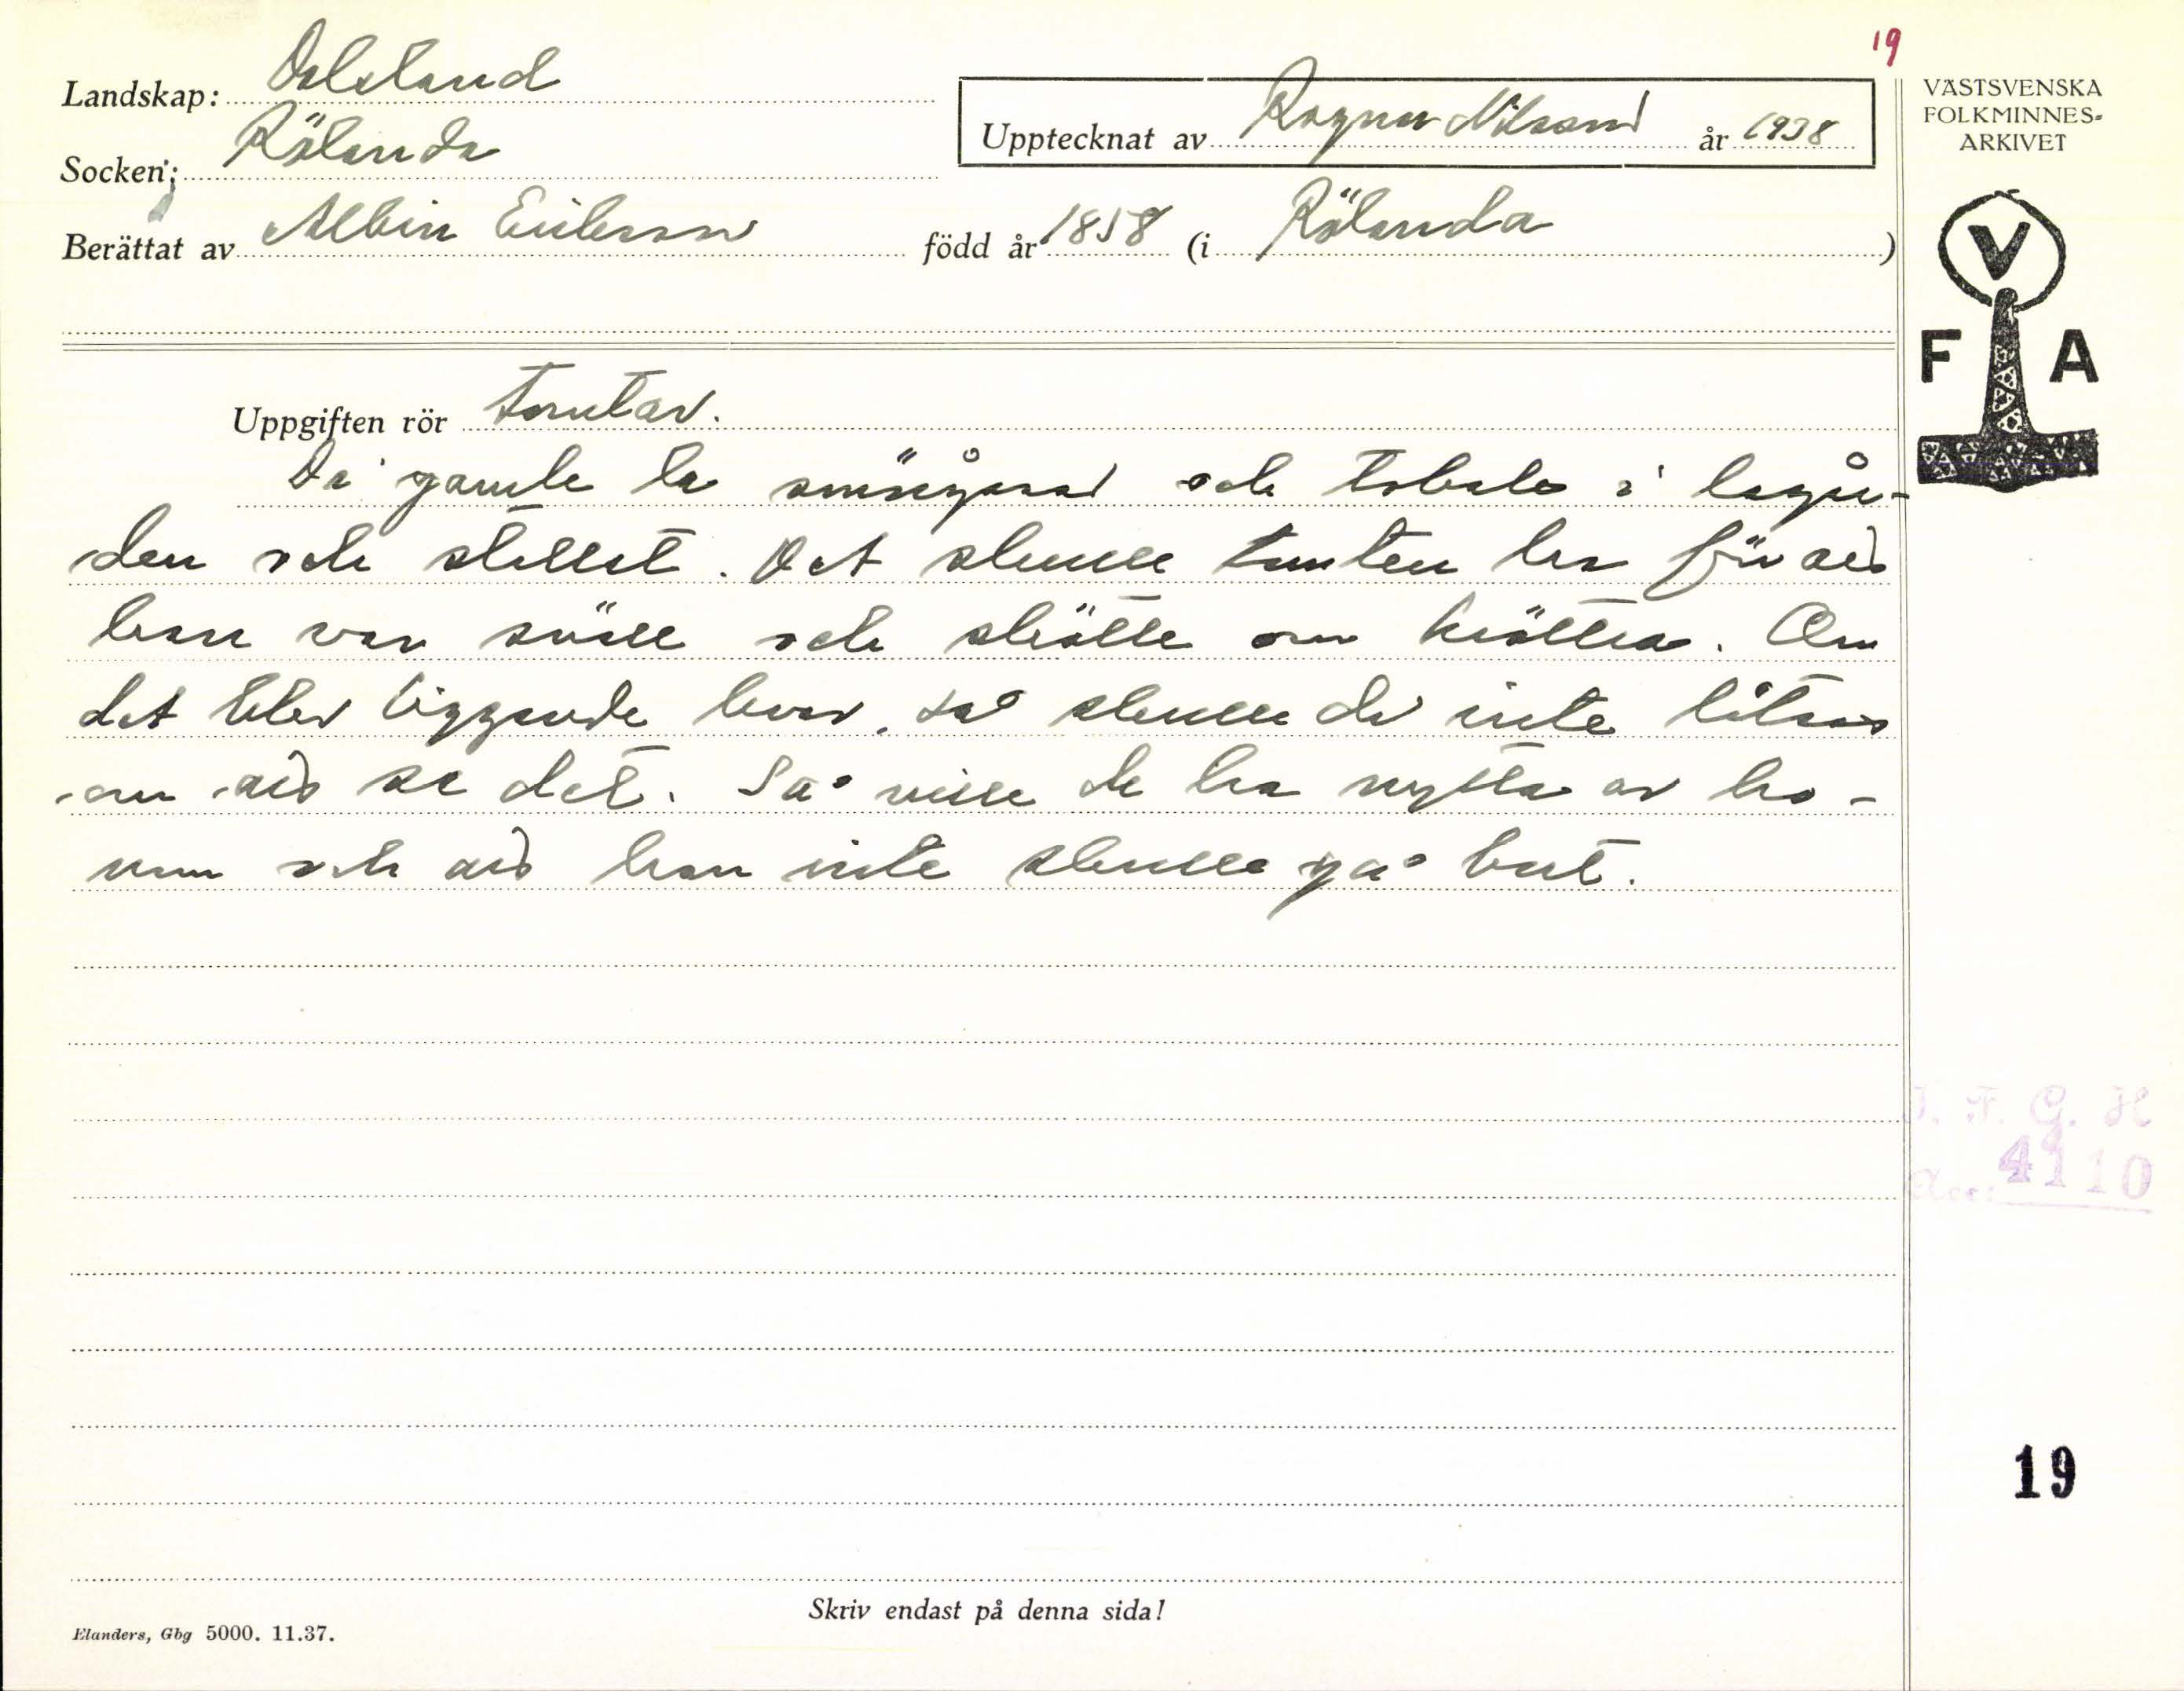 19
Landskap: Dalsland
Socken: Rölanda
Upptecknat av Ragnar Nilsson år 1938
Berättat av Albin Eriksson född år 1858 (i Rölanda)
VÄSTSVENSKA
FOLKMINNES-
ARKIVET
V
F A
Uppgiften rör Tomtar.
De gamle la smörgåsar och tobak i lagår-
den och stallet. Det skulle tomten ha för att
han var snäll och skötte om kräken. Om
det blev liggande kvar, så skulle de inte låtsas
om att se det. Så ville de ha nytta av ho-
nom och att han inte skulle gå bort.
I. F. G. H
Acc: 4110
19
Skriv endast på denna sida!
Elanders, Gbg 5000. 11.37.